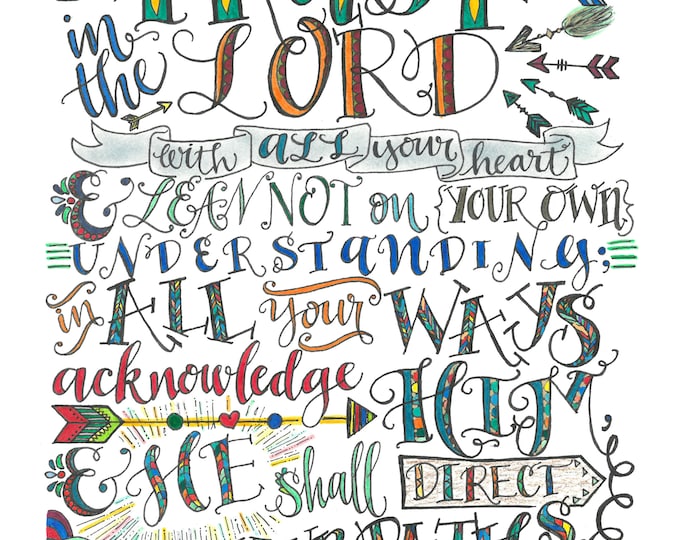 TRUST
in
the LORD
with ALL your heart
& LEAN NOT on {YOUR OWN}
UNDERSTANDING;
in ALL your WAYS
acknowledge HIM,
& HE shall DIRECT
PATHS